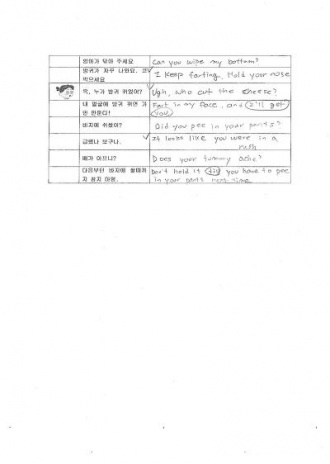 엄마가 닦아 주세요
Can you wipe my bottom?
방귀가 자꾸 나와요. 코
막으세요
I keep farting. Hold your nose
윽, 누가 방귀 뀌었어?
Ugh, who cut the cheese?
내 얼굴에 방귀 뀌면 가
만 안둔다!
Fart in my face, and I'll get
you.
바지에 쉬했어?
Did you pee in your pants?
급했나 보구나.
It looks like you were in a
rush
배가 아프니?
Does your tummy ache?
다음부턴 바지에 쌀때까
지 참지 마렴.
Don't hold it till you have to pee
in your pants next time